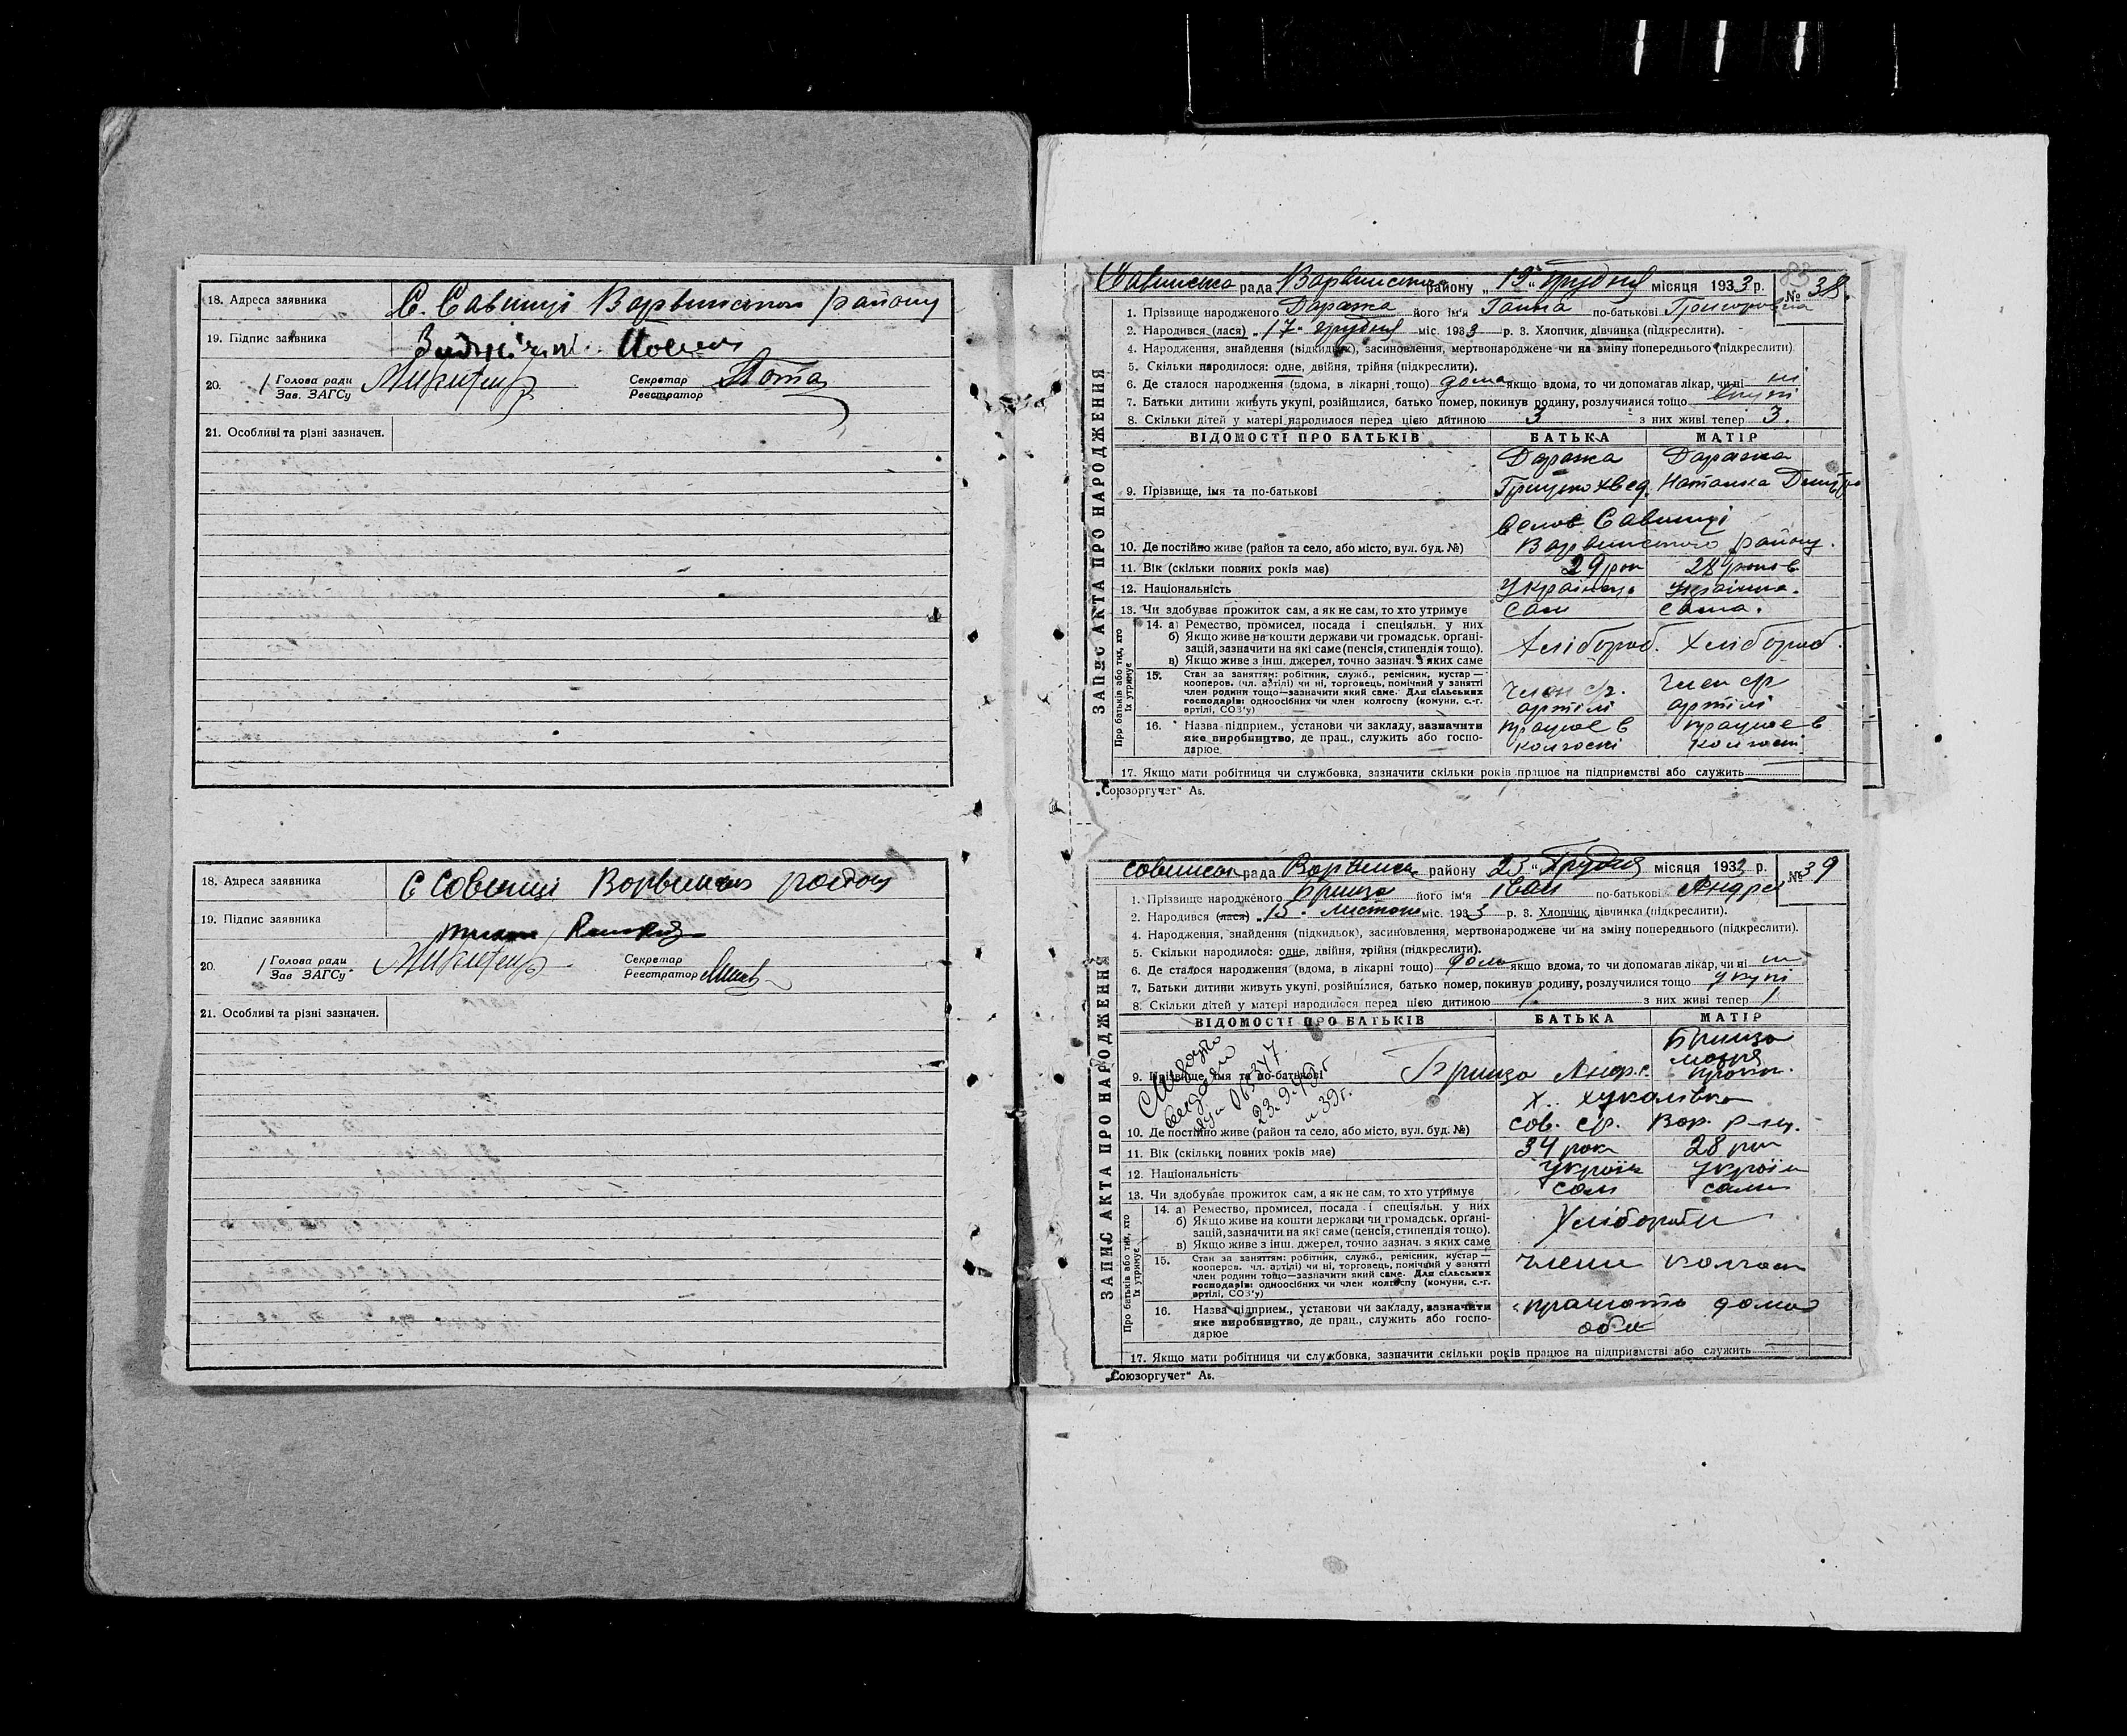 18. Адреса заявника С. Савинці Варвинського району
19. Підпис заявника
20. Голова ради Зав. ЗАГСу Секретар Реєстратор
21. Особливі та різні зазначен.
18. Адреса заявника С Савинці
19. Підпис заявника
20. Голова ради Зав ЗАГСу Секретар Реєстратор
21. Особливі та різні зазначен.
83
Савинська рада Варвинського району „19" грудня місяця 1933 р. № 38.
ЗАПИС АКТА ПРО НАРОДЖЕННЯ
1. Прізвище народженого його ім'я Ганна по-батькові Григоровна
2. Народився (лася) „17" грудня міс. 1933 р. 3. Хлопчик, дівчинка (підкреслити).
4. Народження, знайдення (підкидьок), засиновлення, мертвонароджене чи на зміну попереднього (підкреслити)
5. Скільки народилося: одне, двійня, трійня (підкреслити).
6. Де сталося народження (вдома, в лікарні тощо) дома якщо вдома, то чи допомагав лікар, чи ні ні
7. Батьки дитини живуть укупі, розійшлися, батько помер, покинув родину, розлучилися тощо вкупі
8. Скільки дітей у матері народилося перед цією дитиною 3 з них живі тепер 3.
ВІДОМОСТІ ПРО БАТЬКІВ БАТЬКА МАТІР
9. Прізвище, імя та по-батькові Грицько Хвед. Наталка
село Савинці
10. Де постійно живе (район та село, або місто, вул. буд. №) Варвинського району.
11. Вік (скільки повних років має) 29 рок 28 роков
12. Національність Українець Українка.
13. Чи здобуває прожиток сам, а як не сам, то хто утримує сам сама.
Про батьків або тих, хто їх утримує
14. а) Ремество, промисел, посада і спеціяльн. у них
б) Якщо живе на кошти держави чи громадськ. орґані-
зацій, зазначити на які саме (пенсія, стипендія тощо). Хлібороб. Хлібороб.
в) Якщо живе з інш. джерел, точно зазнач. з яких саме
15. Стан за заняттям: робітник, служб., ремісник, кустар—
кооперов. (чл. артілі) чи ні, торговець, помічний у занятті
член родини тощо—зазначити який саме. Для сільських член с/г. член с/г
господарів: одноосібних чи член колгоспу (комуни, с.-г. артілі артілі
артілі, СОЗ'у)
16. Назва підприєм., установи чи закладу, зазначити працює в працює в
яке виробництво, де прац., служить або госпо- колгоспі колгоспі
дарює
17. Якщо мати робітниця чи службовка, зазначити скільки років працює на підприємстві або служить
„Союзоргучет" Аь.
рада району 23 „Грудня місяця 1933 р. № 39
ЗАПИС АКТА ПРО НАРОДЖЕННЯ
1. Прізвище народженого Бринза його ім'я Іван по-батькові Андрей
2. Народився (лася) „15" листопа міс. 1933 р. 3. Хлопчик, дівчинка (підкреслити).
4. Народження, знайдення (підкидьок), засиновлення, мертвонароджене чи на зміну попереднього (підкреслити).
5. Скільки народилося: одне, двійня, трійня (підкреслити).
6. Де сталося народження (вдома, в лікарні тощо) дома якщо вдома, то чи допомагав лікар, чи ні ні
7. Батьки дитини живуть укупі, розійшлися, батько помер, покинув родину, розлучилися тощо укупі
8. Скільки дітей у матері народилося перед цією дитиною 1. з них живі тепер 1
ВІДОМОСТІ ПРО БАТЬКІВ БАТЬКА МАТІР
Бринза
9. Прізвище, імя та по-батькові Бринза Андр.
23.9.
39г.
10. Де постійно живе (район та село, або місто, вул. буд. №) Сав. с/р. Вар. р-ну.
11. Вік (скільки повних років має) 34 рок 28 рок
12. Національність Україн Україн
13. Чи здобуває прожиток сам, а як не сам, то хто утримує сам сама
Про батьків або тих, хто їх утримує
14. а) Ремество, промисел, посада і спеціяльн. у них
б) Якщо живе на кошти держави чи громадськ. орґані-
зацій, зазначити на які саме (пенсія, стипендія тощо). Хлібороби
в) Якщо живе з інш. джерел, точно зазнач. з яких саме
15. Стан за заняттям: робітник, служб., ремісник, кустар—
кооперов. чл. артілі) чи ні, торговець, помічний у занятті члени
член родини тощо—зазначити який саме. Для сільських
господарів: одноосібних чи член колгоспу (комуни, с.-г.
артілі, СОЗ'у)
16. Назва підприєм., установи чи закладу, зазначити дома
яке виробництво, де прац., служить або госпо- оба
дарює
17. Якщо мати робітниця чи службовка, зазначити скільки років працює на підприємстві або служить
„Союзоргучет" Аь.